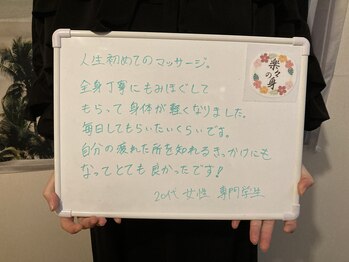 人生初めてのマッサージ。
全身丁寧にもみほぐして
もらって身体が軽くなりました。
毎日してもらいたいくらいです。
自分の疲れた所を知れるきっかけにも
なってとても良かったです!
20代 女性 専門学生
楽々の身